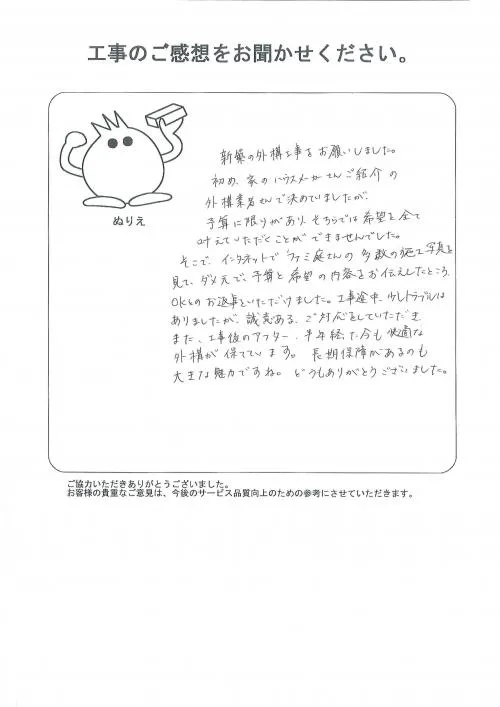 工事のご感想をお聞かせください。
ぬりえ
新築の外構工事をお願いしました。
初め、家のハウスメーカーさんご紹介の
外構業者さんで決めていましたが、
予算に限りがあり、そちらでは希望を全て
叶えていただくことができませんでした。
そこで、インターネットでファミ庭さんの多数の施工写真を
見て、ダメ元で、予算と希望の内容をお伝えしたところ、
OKとのお返事をいただけました。工事途中、少しトラブルは
ありましたが、誠意ある、ご対応をしていただき
また、工事後のアフター、半年経った今も快適な
外構が保てています。長期保障があるのも
大きな魅力ですね。どうもありがとうございました。
ご協力いただきありがとうございました。
お客様の貴重なご意見は、今後のサービス品質向上のための参考にさせていただきます。